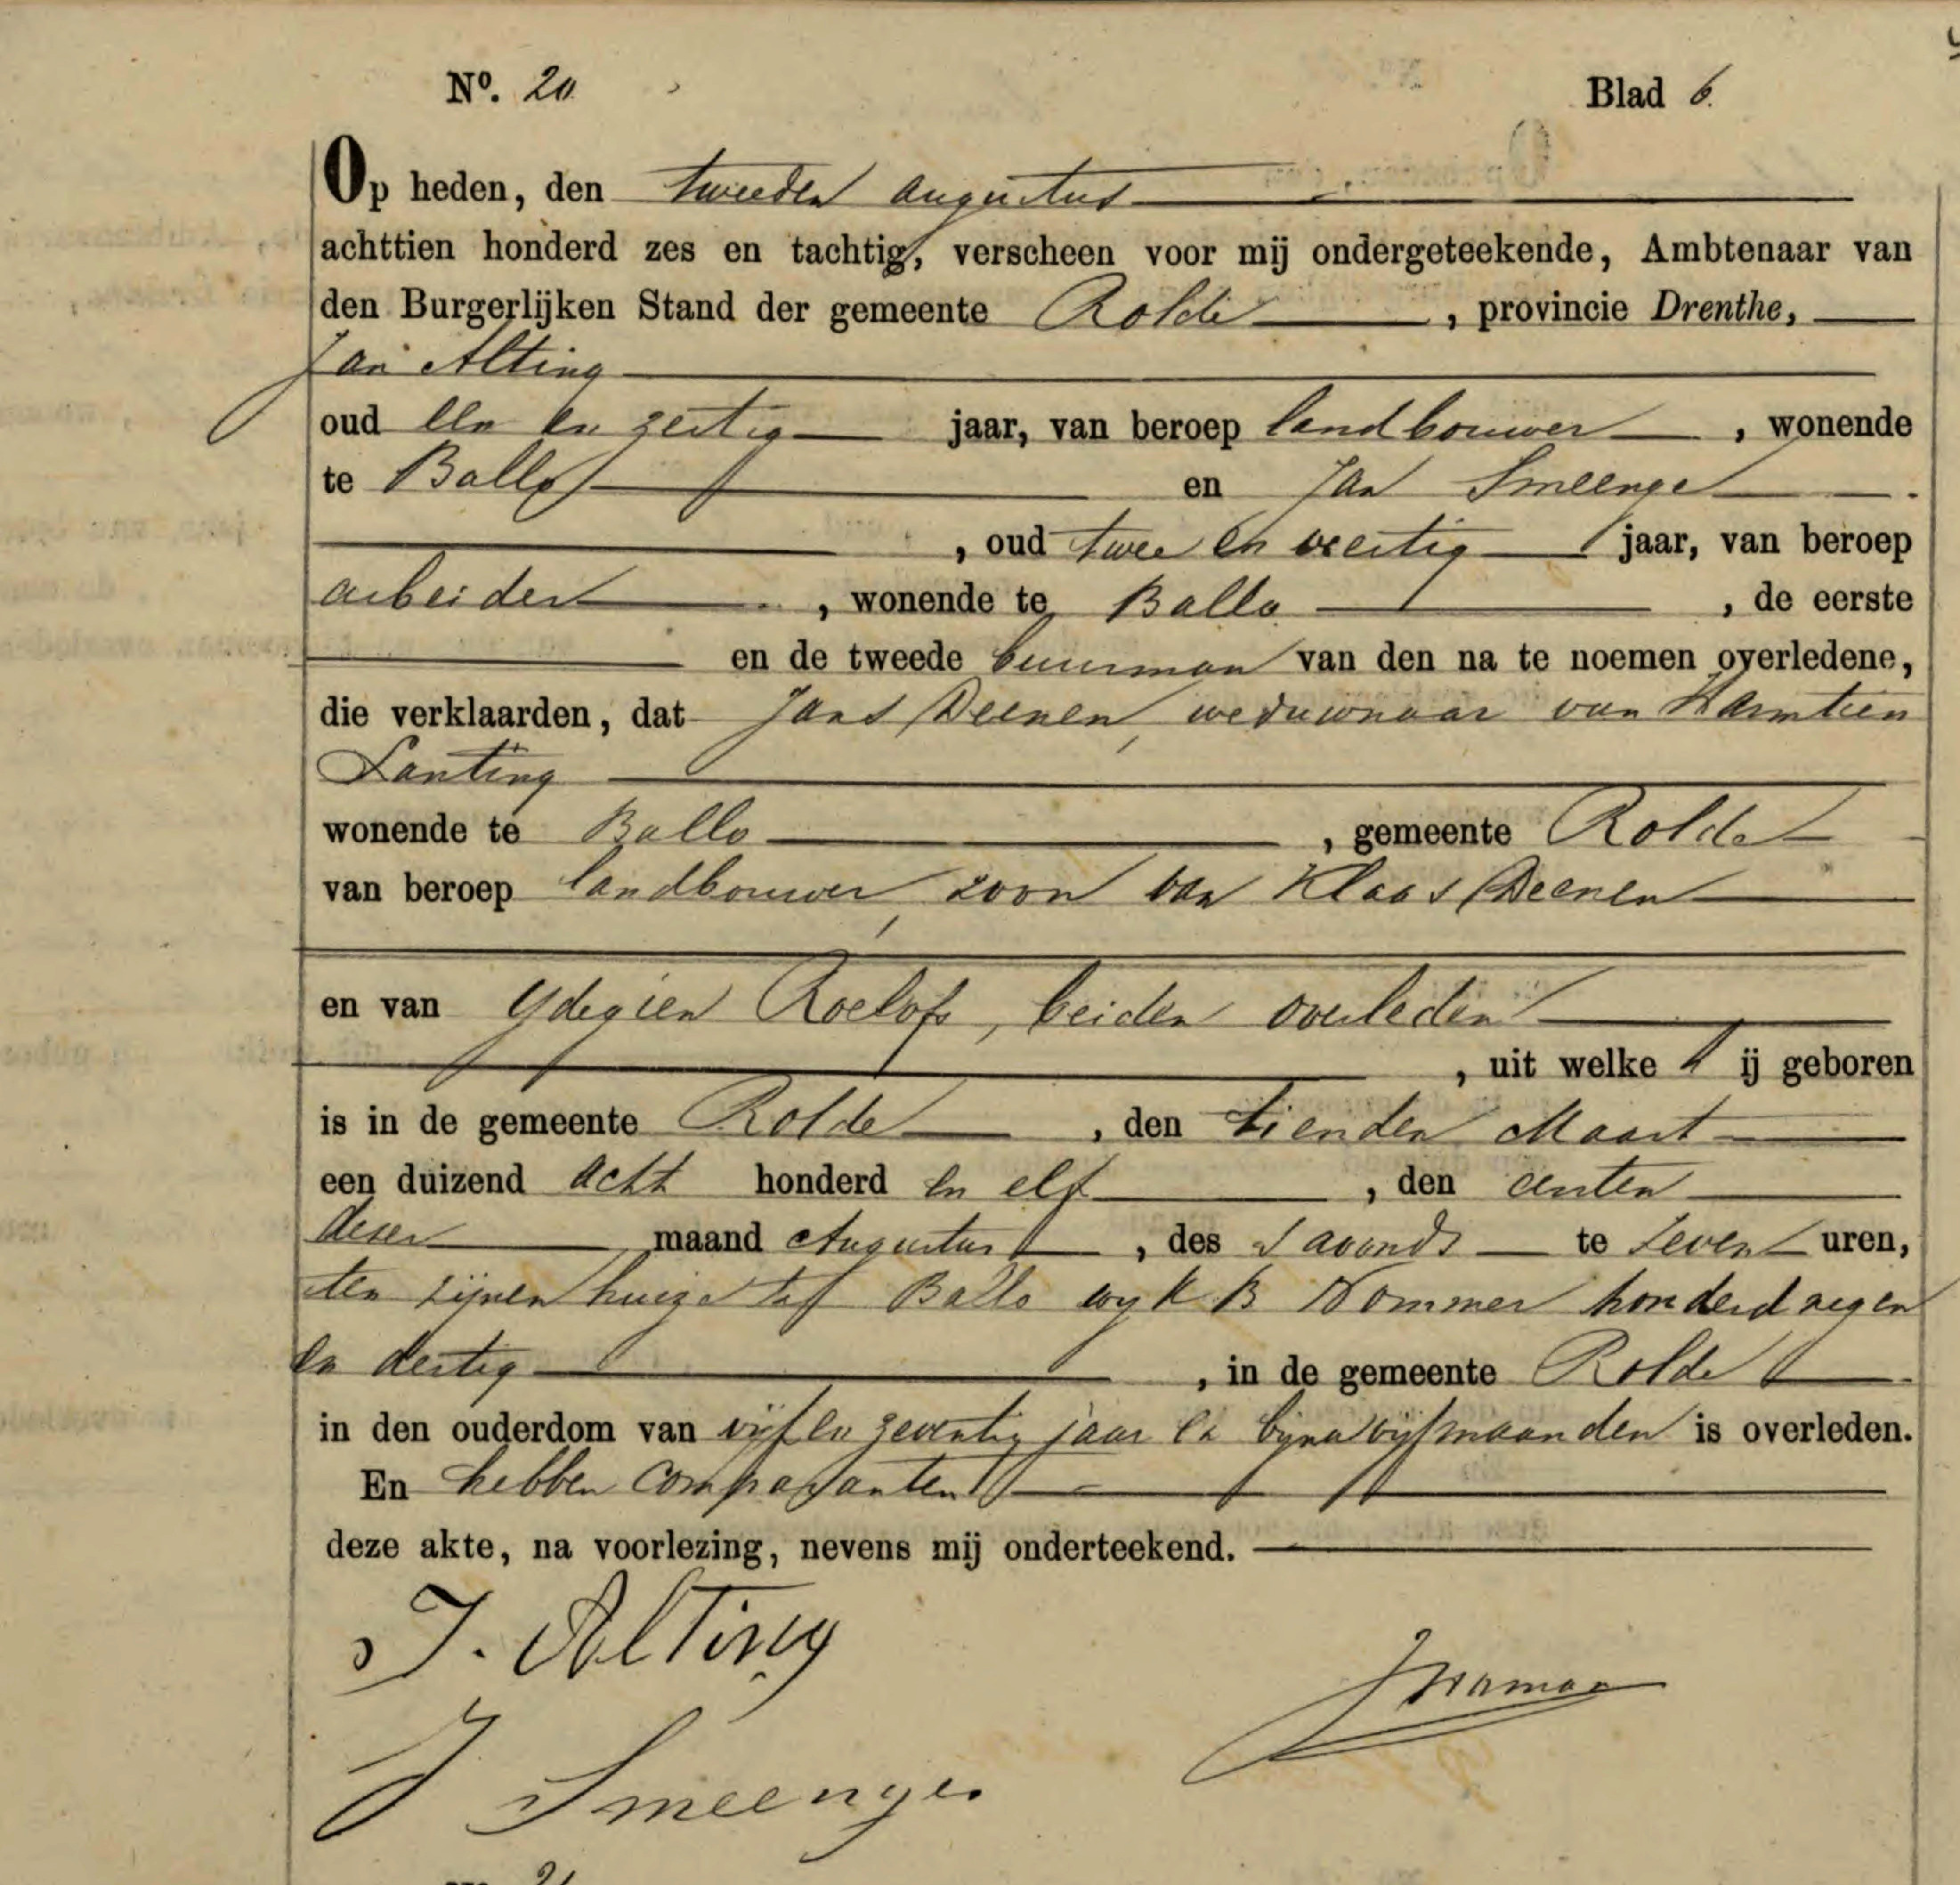 Nº. 20 Blad 6.
Op heden, den tweeden Augustus
achttien honderd zes en tachtig, verscheen voor mij ondergeteekende, Ambtenaar van
den Burgerlijken Stand der gemeente Rolde, provincie Drenthe,
Jan Alting
oud een en zestig jaar, van beroep landbouwer, wonende
te Ballo en Jan Smeenge
, oud twee en veertig jaar, van beroep
arbeider, wonende te Ballo, de eerste
en de tweede buurman van den na te noemen overledene,
die verklaarden, dat Jans Deenen, weduwnaar van Harmtien
Lanting
wonende te Ballo, gemeente Rolde
van beroep landbouwer, zoon van Klaas Deenen
en van Ydegien Roelofs, beiden overleden
, uit welke hij geboren
is in de gemeente Rolde, den tienden Maart
een duizend acht honderd en elf, den eersten
dezer maand Augustus, des s avonds te zeven uren,
ten zijnen huize te Ballo wyk B Nommer honderd negen
en dertig, in de gemeente Rolde
in den ouderdom van vijf en zeventig jaar en byna vyf maanden is overleden.
En hebben comparanten
deze akte, na voorlezing, nevens mij onderteekend.
J. Alting
J Smeenge